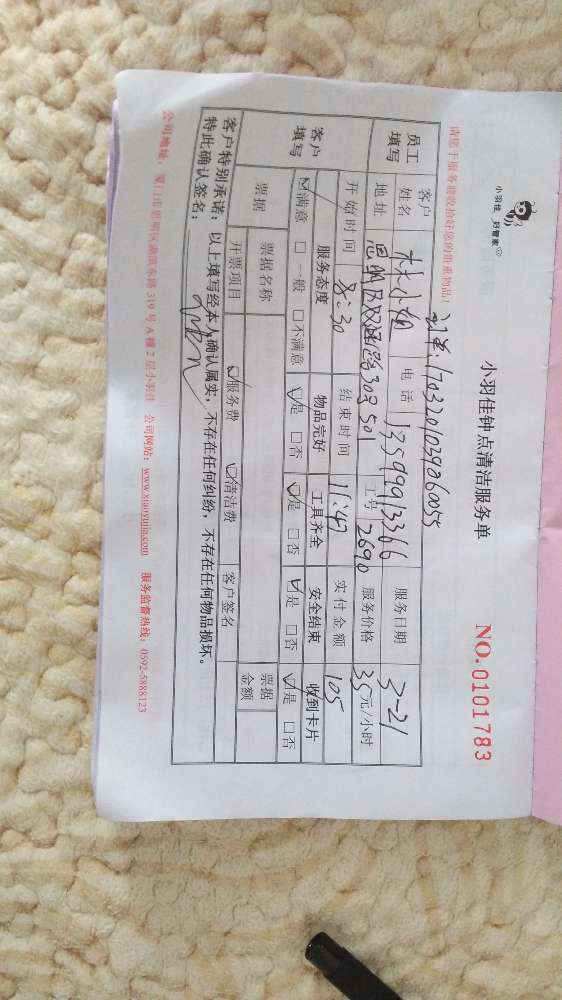 小羽佳 好管家
小羽佳钟点清洁服务单
NO.0101783
请您于服务前收拾好您的贵重物品!
订单:1703201039060055
员工填写 客户姓名 林小姐 电话 13599913366 服务日期 3-21
地址 思明区双涵路303号501 工号 2690 服务价格 35元/小时
开始时间 8:30 结束时间 11:47 实付金额 105
客户填写 服务态度 物品完好 工具齐全 安全结束 收到卡片
☑满意 □一般 □不满意 ☑是 □否 ☑是 □否 ☑是 □否 ☑是 □否
票据 票据名称 票据金额
开票项目 ☑服务费 ☑清洁费 客户签名
客户特别承诺:以上填写经本人确认属实,不存在任何纠纷,不存在任何物品损坏。
特此确认签名:
公司地址:厦门市思明区湖滨东路319号A幢2层小羽佳 公司网站:www.xiaoyujia.com 服务监督热线:0592-5888123